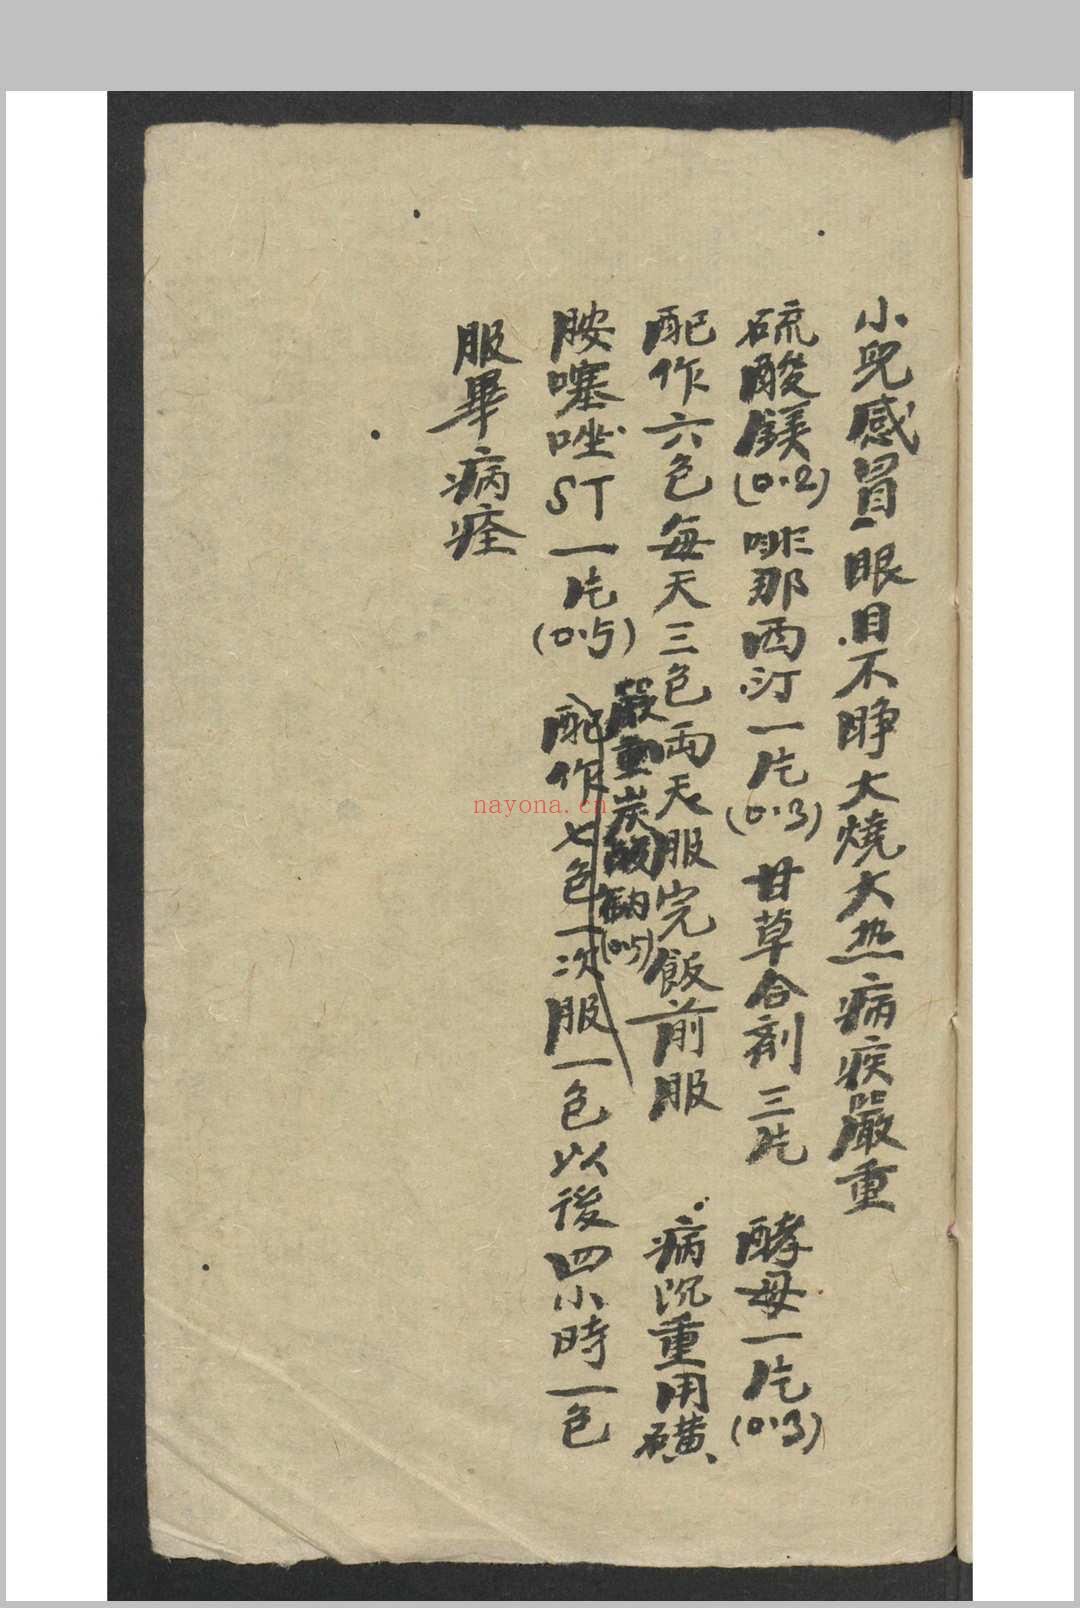 小兒感冒眼目不睁大燒大热病疾嚴重
硫酸鎂(0.2)啡那西汀一片(0.3)甘草合剤三片 酵母一片(0.3)
配作六色每天三色両天服完飯前服 病沉重用磺
嚴重炭酸鈉(0.5)
胺噻唑ST一片(0.5) 配作七色一次服一色以後四小時一色
服畢病痊
nayona.cn